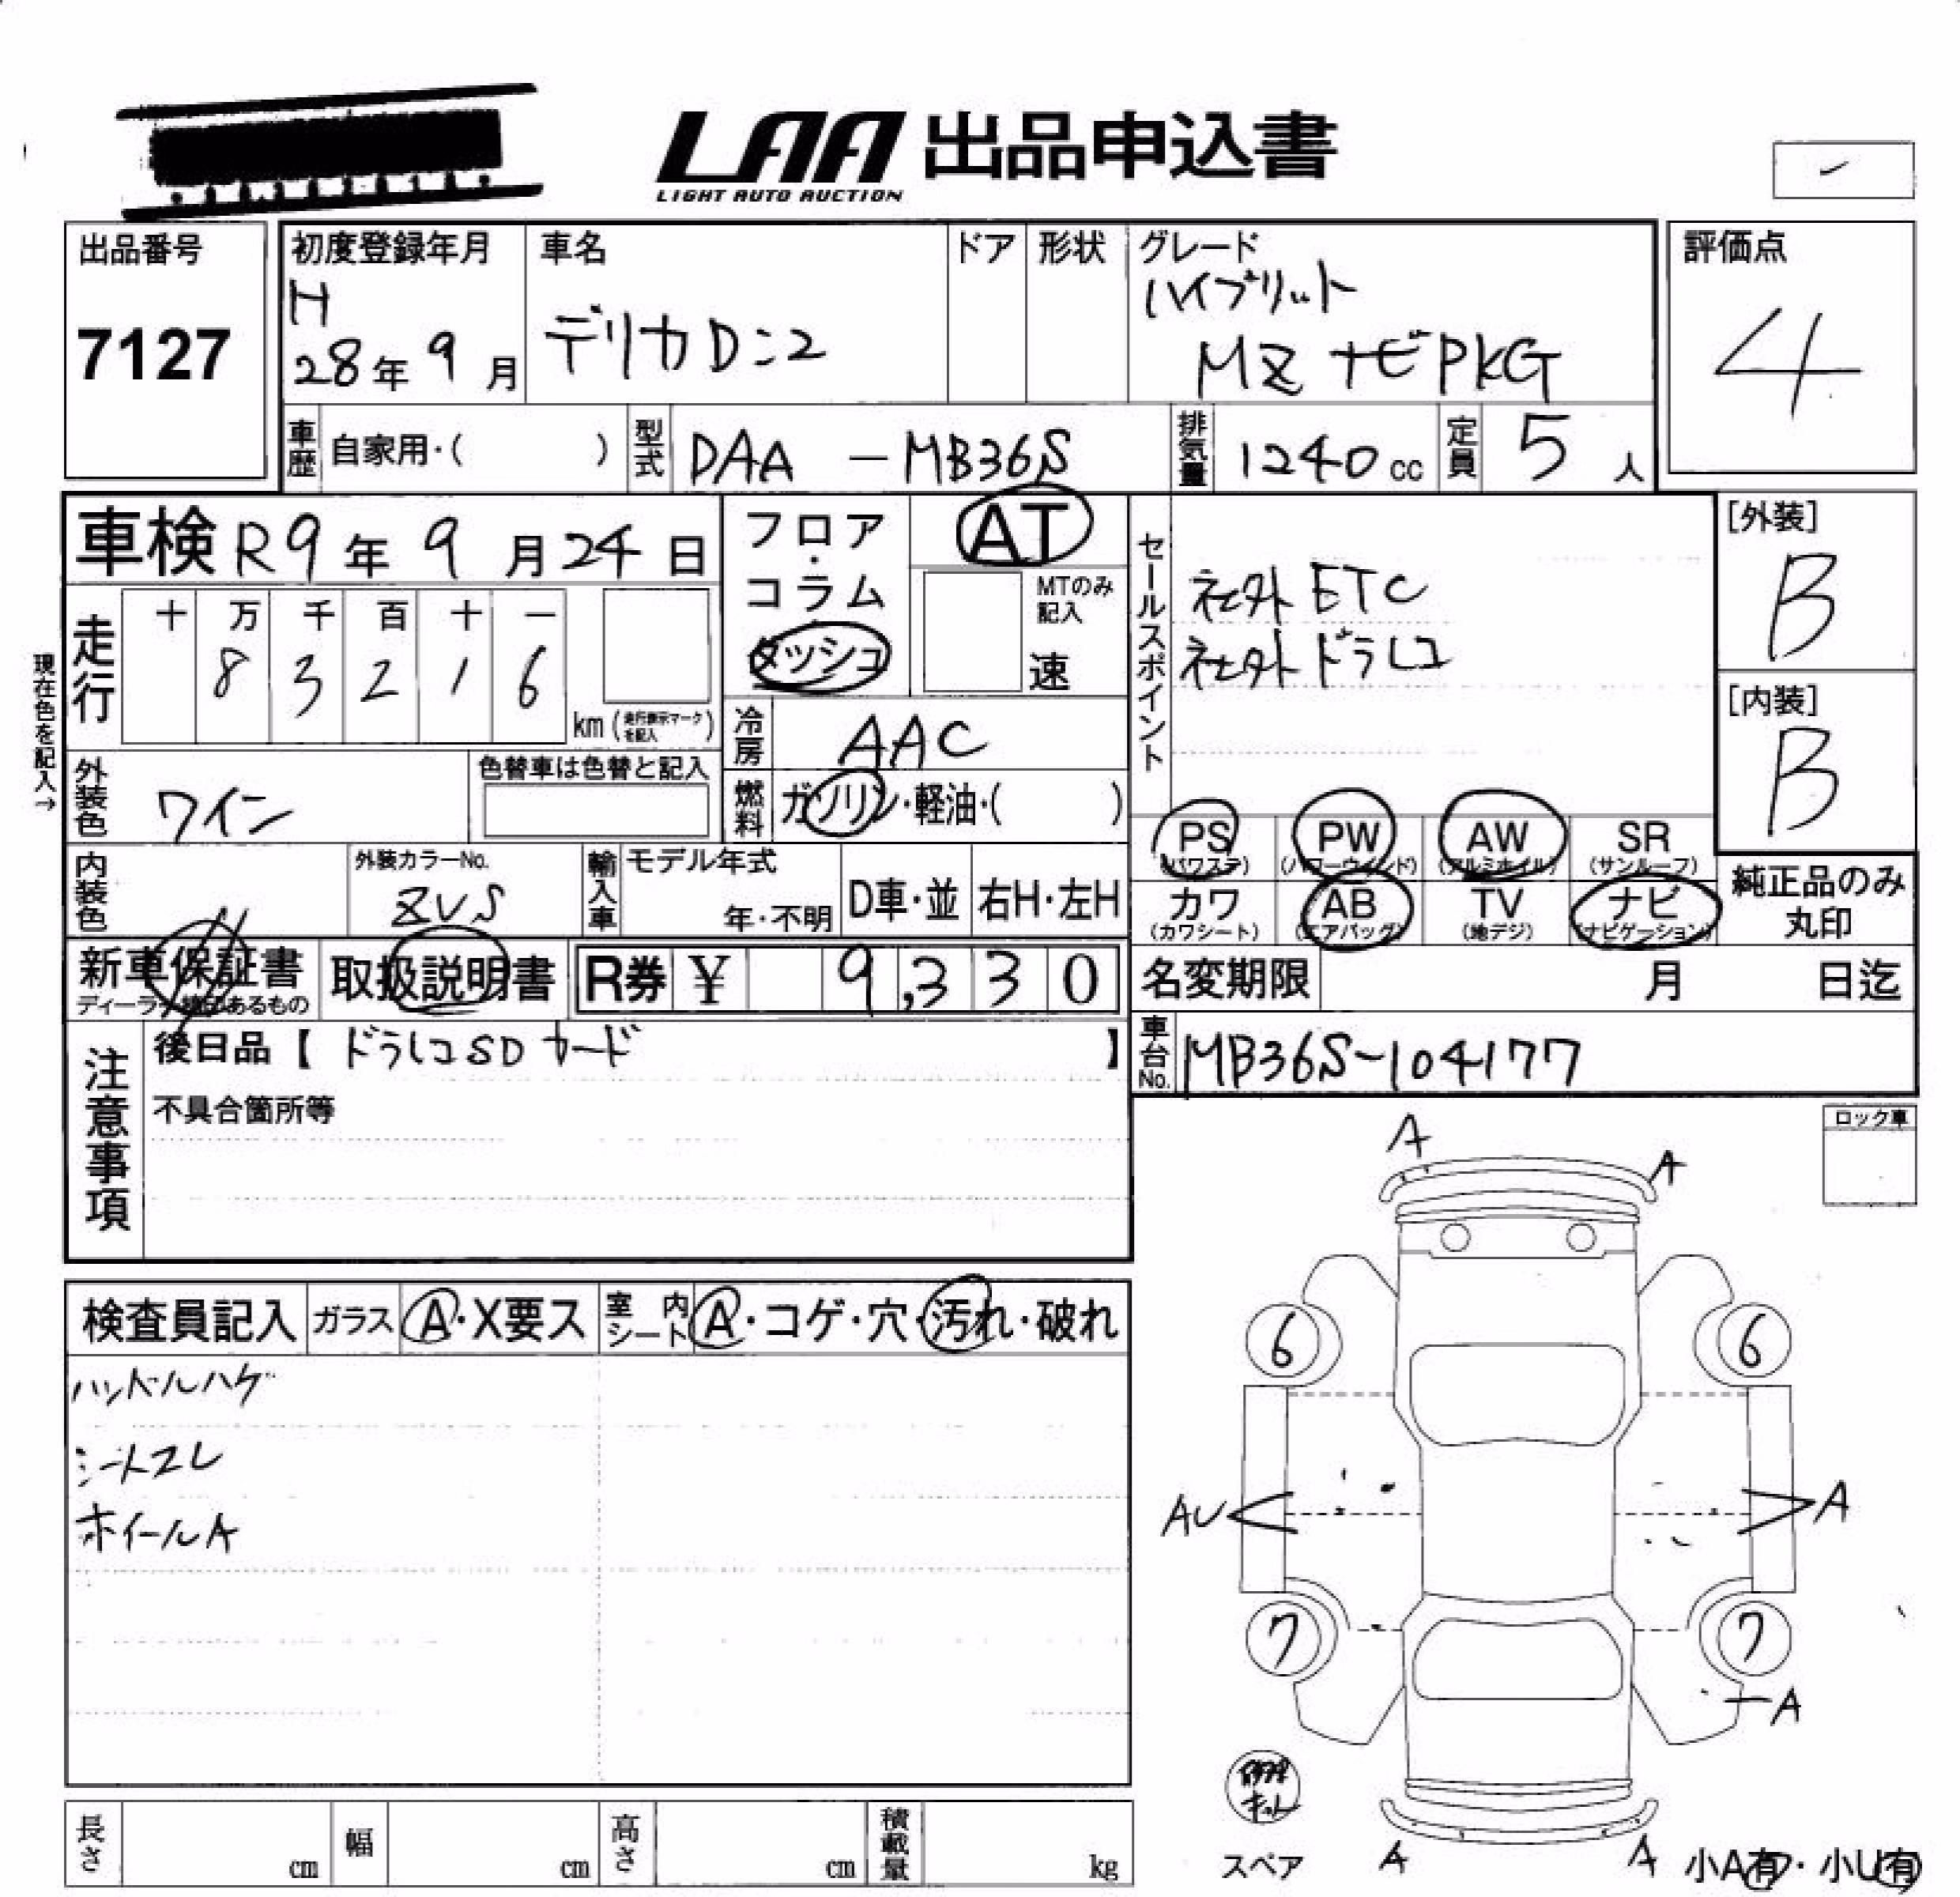 LAA 出品申込書
LIGHT AUTO AUCTION
出品番号
7127
初度登録年月
H
28年 9月
車名
デリカD:2
ドア
形状
グレード
ハイブリット
MZ ナビPKG
評価点
4
車歴 自家用・( )
型式 DAA -MB36S
排気量 1240cc
定員 5人
車検 R9年 9月24日
現在色を記入→
走行
十 万 千 百 十 一
8 3 2 1 6
km (走行表示マークを記入)
フロア・コラム ダッシュ
AT
MTのみ記入
速
冷房 AAC
燃料 ガソリン・軽油・( )
セールスポイント
社外 ETC
社外 ドラレコ
[外装]
B
[内装]
B
外装色 ワイン
色替車は色替と記入
内装色
外装カラーNo.
ZVS
輸入車 モデル年式
年・不明
D車・並
右H・左H
PS (パワステ)
PW (パワーウインド)
AW (アルミホイル)
SR (サンルーフ)
カワ (カワシート)
AB (エアバッグ)
TV (地デジ)
ナビ (ナビゲーション)
純正品のみ丸印
新車保証書
取扱説明書
R券 ¥ 9,330
名変期限 月 日迄
車台No. MB36S-104177
注意事項
後日品【 ドラレコSDカード 】
不具合箇所等
ロック車
検査員記入
ガラス A・X要ス
室内シート A・コゲ・穴・汚れ・破れ
ハンドルハゲ
シートスレ
ホイールA
A
A
6
6
AU
A
7
7
A
修理キット
スペア
A
A
小A有・小U有
長さ cm
幅 cm
高さ cm
積載量 kg